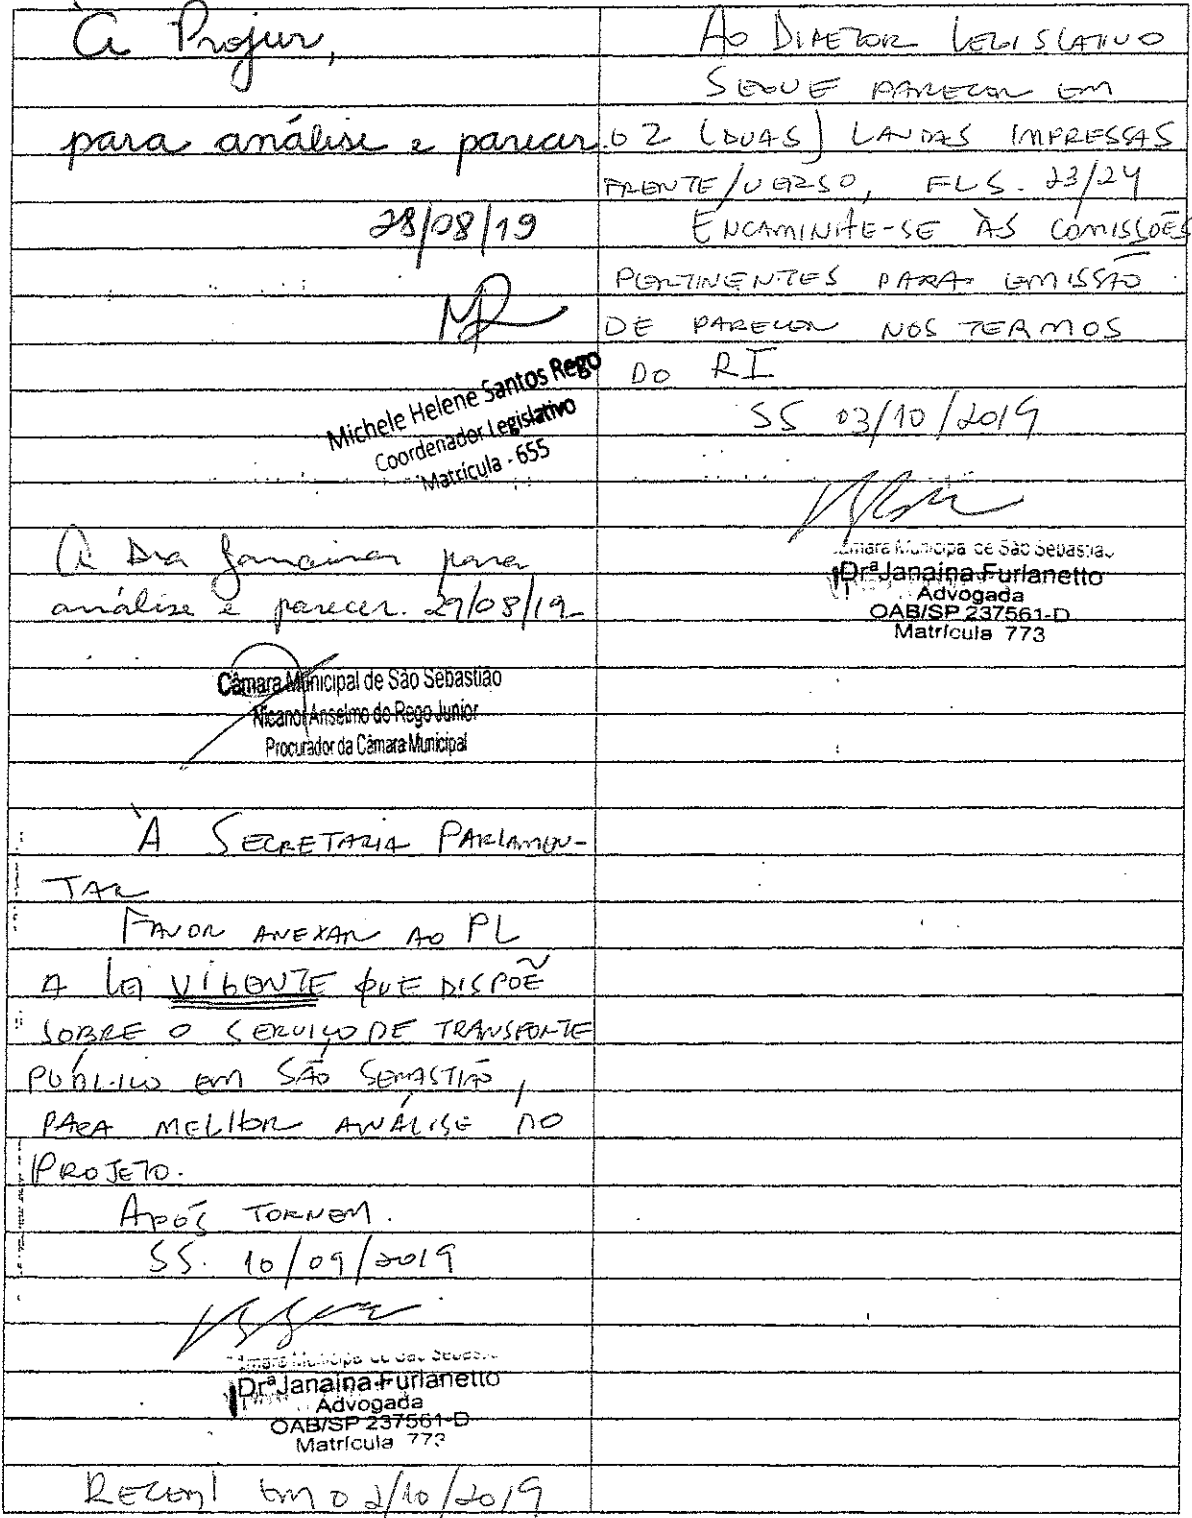 À Projur,
para análise e parecer.
28/08/19
Michele Helene Santos Rego
Coordenador Legislativo
Matrícula - 655
À Dra Janaina para
análise e parecer. 29/08/19
Câmara Municipal de São Sebastião
Nicanor Anselmo do Rego Junior
Procurador da Câmara Municipal
À SECRETARIA PARLAMEN-
TAR
FAVOR ANEXAR AO PL
A LEI VIGENTE QUE DISPÕE
SOBRE O SERVIÇO DE TRANSPORTE
PÚBLICO EM SÃO SEBASTIÃO,
PARA MELHOR ANÁLISE DO
PROJETO.
APÓS TORNEM.
SS. 10/09/2019
Câmara Municipal de São Sebastião
Drª Janaina Furlanetto
Advogada
OAB/SP 237561-D
Matrícula 773
RECEBI EM 02/10/2019
AO DIRETOR LEGISLATIVO
SEGUE PARECER EM
02 (DUAS) LAUDAS IMPRESSAS
FRENTE/VERSO, FLS. 23/24
ENCAMINHE-SE ÀS COMISSÕES
PERTINENTES PARA EMISSÃO
DE PARECER NOS TERMOS
DO RI
SS 03/10/2019
Câmara Municipal de São Sebastião
Drª Janaina Furlanetto
Advogada
OAB/SP 237561-D
Matrícula 773